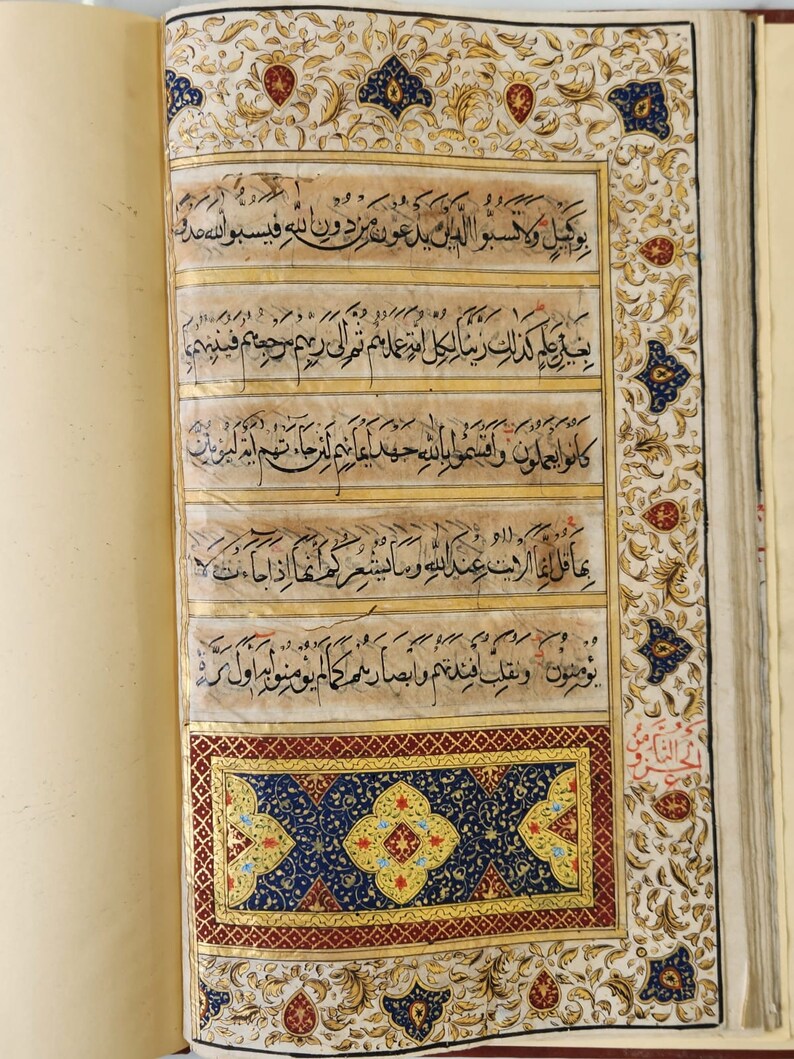 بِوَكِيلٍ وَلَا تَسُبُّوا الَّذِينَ يَدْعُونَ مِنْ دُونِ اللَّهِ فَيَسُبُّوا اللَّهَ عَدْوًا
بِغَيْرِ عِلْمٍ كَذَلِكَ زَيَّنَّا لِكُلِّ أُمَّةٍ عَمَلَهُمْ ثُمَّ إِلَى رَبِّهِمْ مَرْجِعُهُمْ فَيُنَبِّئُهُمْ بِمَا
كَانُوا يَعْمَلُونَ وَأَقْسَمُوا بِاللَّهِ جَهْدَ أَيْمَانِهِمْ لَئِنْ جَاءَتْهُمْ آيَةٌ لَيُؤْمِنُنَّ
بِهَا قُلْ إِنَّمَا الْآيَاتُ عِنْدَ اللَّهِ وَمَا يُشْعِرُكُمْ أَنَّهَا إِذَا جَاءَتْ لَا
يُؤْمِنُونَ وَنُقَلِّبُ أَفْئِدَتَهُمْ وَأَبْصَارَهُمْ كَمَا لَمْ يُؤْمِنُوا بِهِ أَوَّلَ مَرَّةٍ
الجزو الثامن